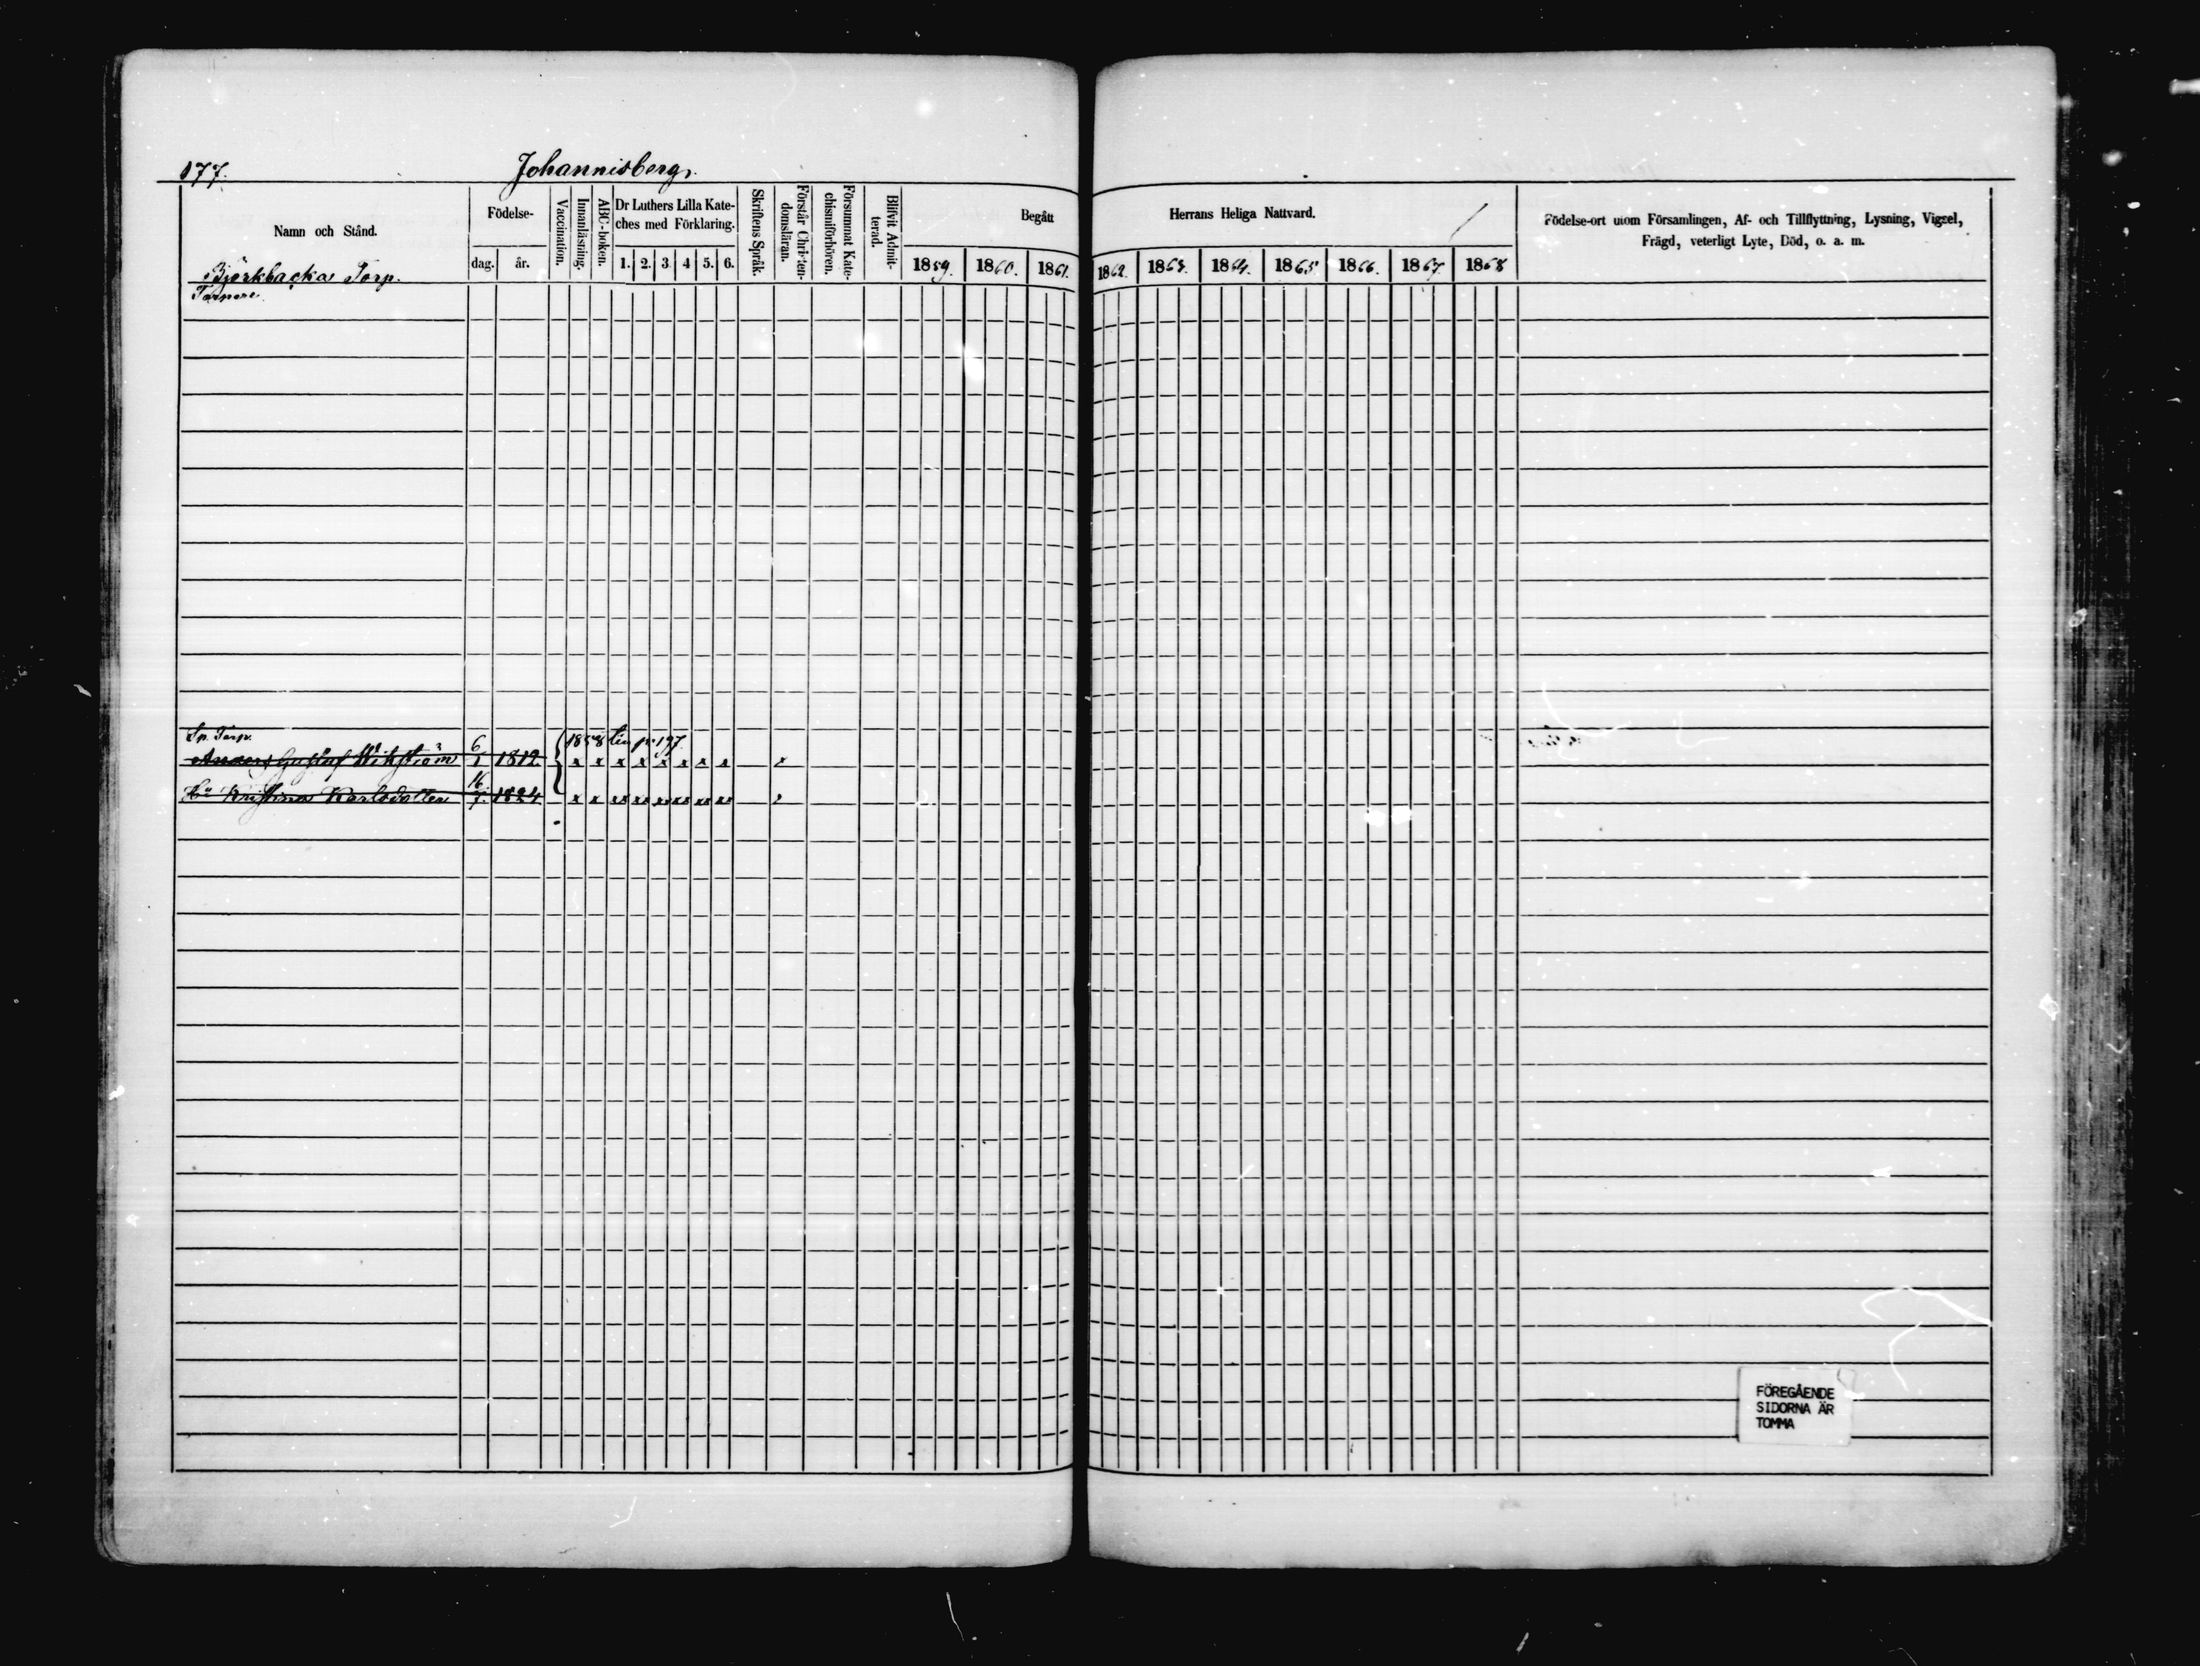 177.
Johannisberg.
Namn och Stånd.
Födelse-
dag. år.
Vaccination.
Innanläsning.
ABC-boken.
Dr Luthers Lilla Kate-
ches med Förklaring.
1. 2. 3 4 5. 6.
Skriftens Språk.
Förstår Christen-
domsläran.
Försummat Kate-
chismiförhören.
Blifvit Admit-
terad.
Begått
1859. 1860. 1861.
Herrans Heliga Nattvard.
1862. 1863. 1864. 1865 1866. 1867. 1868
Födelse-ort utom Församlingen, Af- och Tillflyttning, Lysning, Vigsel,
Frägd, veterligt Lyte, Död, o. a. m.
Björkbacka Torp.
Torpare.
Torp. 1858 197.
Anders Gustaf Wikström 6/1 1812. x x x x x x x x
Kristina Karlsdotter 16/7. 1824 x x xx xx xx xx xx xx
FÖREGÅENDE
SIDORNA ÄR
TOMMA